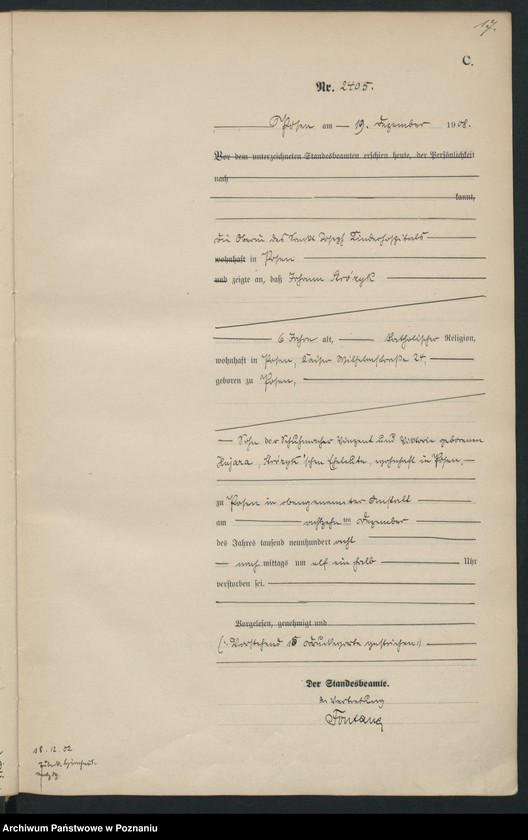 17.
C.
Nr. 2405.
Posen am 19. Dezember 1908.
Vor dem unterzeichneten Standesbeamten erschien heute, der Persönlichkeit
nach
kannt,
die Oberin des Sankt Joseph Kinderhospitals
wohnhaft in Posen
und zeigte an, daß Johann Strózyk
6 Jahre alt, katholischer Religion,
wohnhaft in Posen, Kaiser Wilhelmstraße 24,
geboren zu Posen,
Sohn der Schuhmacher Vinzent und Viktoria geborenen
Hujara, Strózyk'schen Eheleute, wohnhaft in Posen,
zu Posen in obengenannter Anstalt
am achtzehnten Dezember
des Jahres tausend neunhundert acht
nachmittags um elf ein halb Uhr
verstorben sei.
Vorgelesen, genehmigt und
(: Vorstehend 15 Druckworte gestrichen :)
Der Standesbeamte.
In Vertretung
Fontane
18.12.02
Archiwum Państwowe w Poznaniu